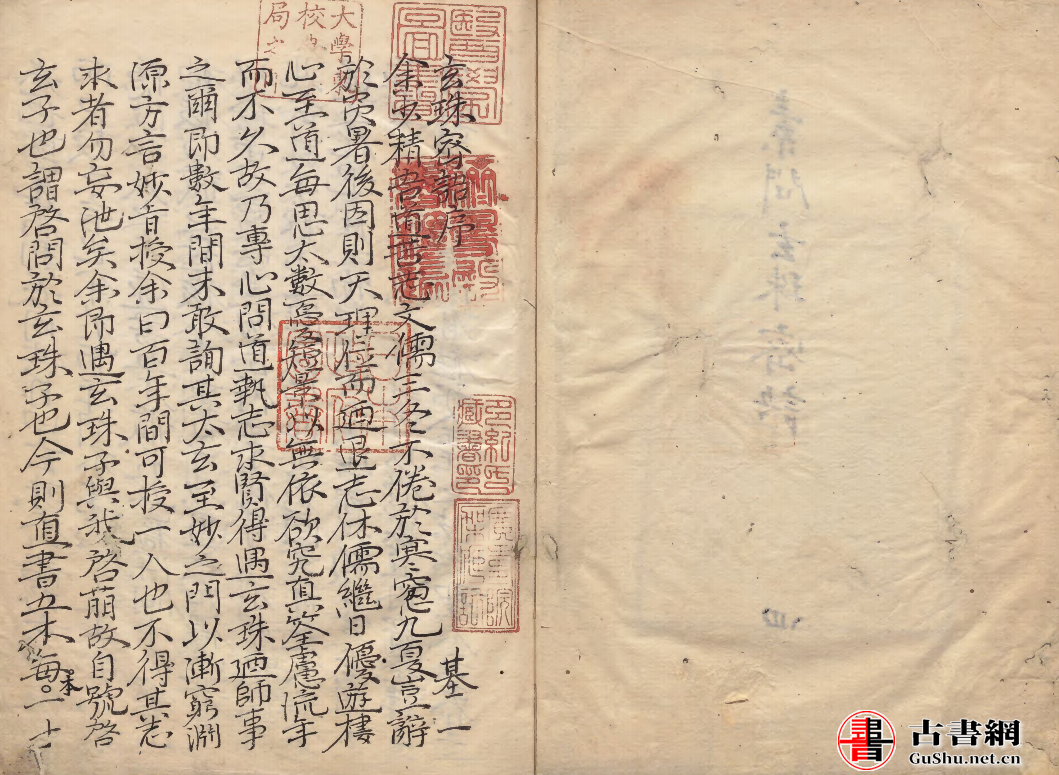 玄珠密語序
基一
余少精吾道苦志文儒三冬不倦於寒窓九夏豈辭
於炎暑後因則天理位而退志休儒繼日優遊棲
心至道每思太數為短景以無依欲究真筌慮流年
而不久故乃專心問道執志求賢得遇玄珠廼師事
之爾即數年間未敢詢其太玄至妙之門以漸窮淵
源方言妙旨授余曰百年間可授一人也不得其志
求者勿妄泄矣余即遇玄珠子與我啓萠故自號啓
玄子也謂啓問於玄珠子也今則直書五本每本一十
素問玄珠密語
四
大學東校
局
古書網
GuShu.net.cn